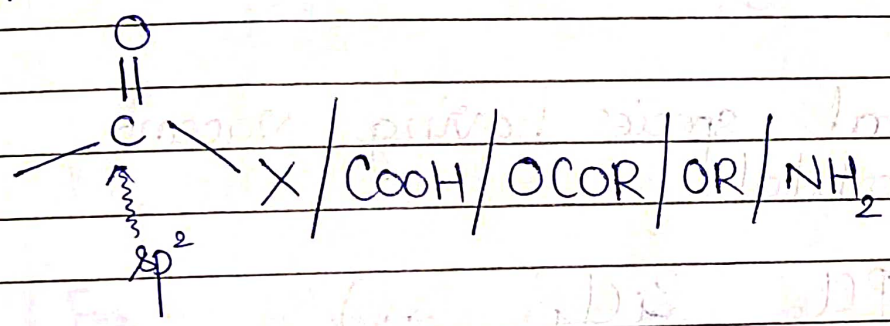 O
||
C
X / COOH / OCOR / OR / NH₂
sp²